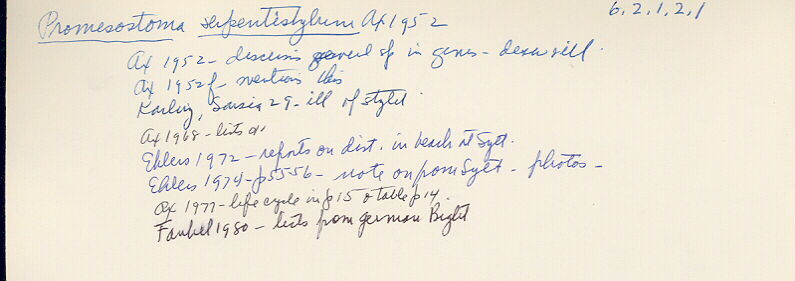 Promesostoma serpentistylum Ax 1952 6.2.1.2.1
Ax 1952 - discuss several sp in genus - desc + ill.
Ax 1952f - mentions this
Karling, Sarsia 29 - ill of stylet.
Ax 1968 - lists
Ehlers 1972 - reports on dist. in beach at Sylt.
Ehlers 1974 - p 55-56 - note on from Sylt - photos -
Ax 1977 - life cycle in p 15 & table p 14.
Faubel 1980 - lists from German Bight